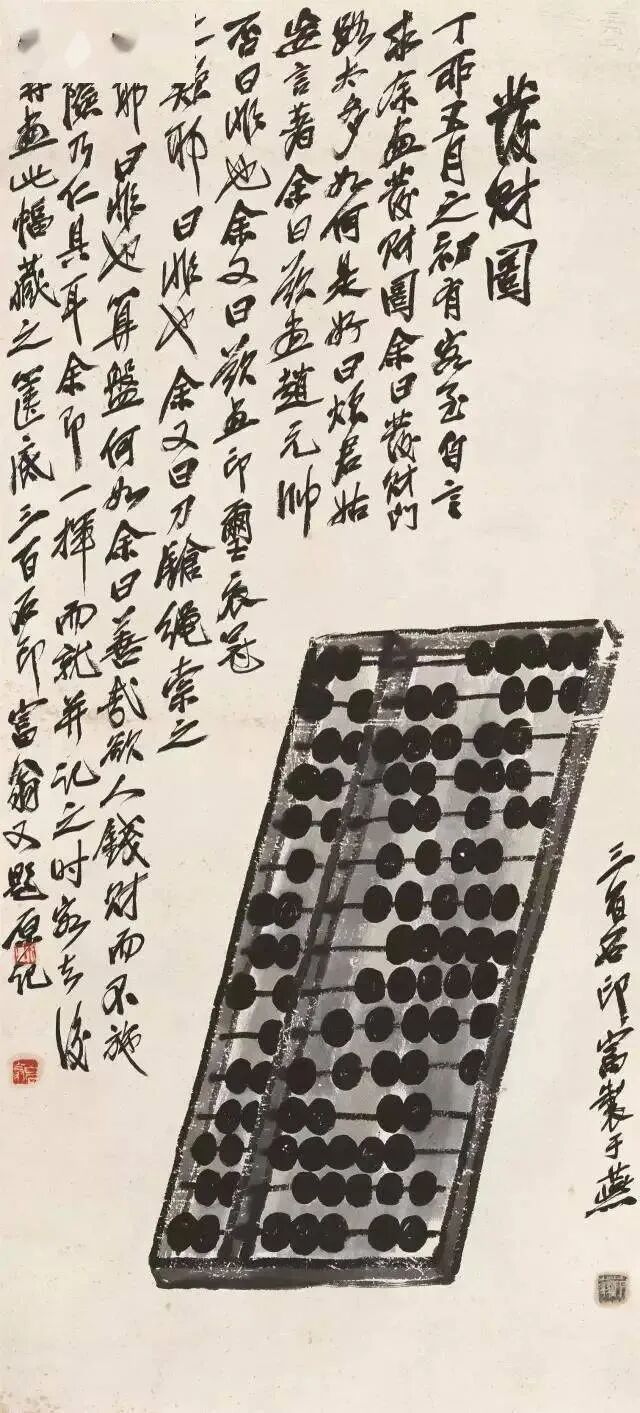 發財圖
丁卯五月之初有客至自言
求余畫發財圖余曰發財門
路太多如何是好曰煩君姑
妄言著余曰欲畫趙元帥
否曰非也余又曰欲畫印璽衣冠
之類耶曰非也余又曰刀鎗繩索之
耶曰非也算盤何如余曰善哉欲人錢財而不施
險乃仁具耳余即一揮而就并記之時客去後
再畫此幅藏之篋底三百石印富翁又題原記
三百石印富製于燕